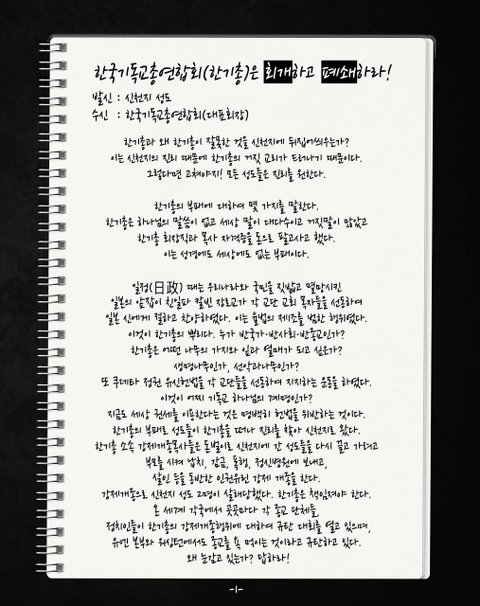 한국기독교총연합회(한기총)은 회개하고 폐쇄하라!
발신 : 신천지 성도
수신 : 한국기독교총연합회(대표회장)
한기총과 왜 한기총이 잘못한 것을 신천지에 뒤집어씌우는가?
이는 신천지의 진리 때문에 한기총의 거짓 교리가 드러나기 때문이다.
그렇다면 고쳐야지! 모든 성도들은 진리를 원한다.
한기총의 부패에 대하여 몇 가지를 말한다.
한기총은 하나님의 말씀이 없고 세상 말이 대다수이고 거짓말이 많았고
한기총 회장직과 목사 자격증을 돈으로 팔고사고 했다.
이는 성경에도 세상에도 없는 부패이다.
일정(日政) 때는 우리나라와 국민을 짓밟고 멸망시킨
일본의 앞잡이 친일파 칼빈 장로교가 각 교단 교회 목자들을 선동하여
일본 신에게 절하고 찬양하였다. 이는 율법의 제1조를 범한 행위였다.
이것이 한기총의 뿌리다. 누가 반국가·반사회·반종교인가?
한기총은 어떤 나무의 가지와 잎과 열매가 되고 싶은가?
생명나무인가, 선악과나무인가?
또 쿠데타 정권 유신헌법을 각 교단들을 선동하여 지지하는 운동을 하였다.
이것이 어찌 기독교 하나님의 계명인가?
지금도 세상 권세를 이용한다는 것은 명백히 헌법을 위반하는 것이다.
한기총의 부패로 성도들이 한기총을 떠나 진리를 찾아 신천지로 왔다.
한기총 소속 강제개종목사들은 돈벌이로 신천지에 간 성도들을 다시 끌고 가려고
부모를 시켜 납치, 감금, 폭행, 정신병원에 보내고,
살인 등을 동반한 인권유린 강제 개종을 한다.
강제개종으로 신천지 성도 2명이 살해당했다. 한기총은 책임져야 한다.
온 세계 각국에서 곳곳마다 각 종교 단체들,
정치인들이 한기총의 강제개종행위에 대하여 규탄 대회를 열고 있으며,
유엔 본부와 워싱턴에서도 종교를 욕 먹이는 것이라고 규탄하고 있다.
왜 눈감고 있는가? 답하라!
-1-